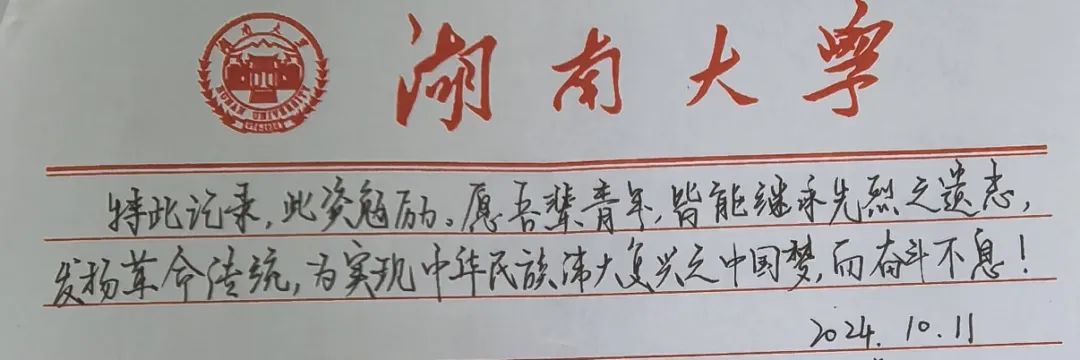 湖南大学
HUNAN UNIVERSITY
特此记录,此资勉励。愿吾辈青年,皆能继承先烈之遗志,
发扬革命传统,为实现中华民族伟大复兴之中国梦,而奋斗不息!
2024.10.11